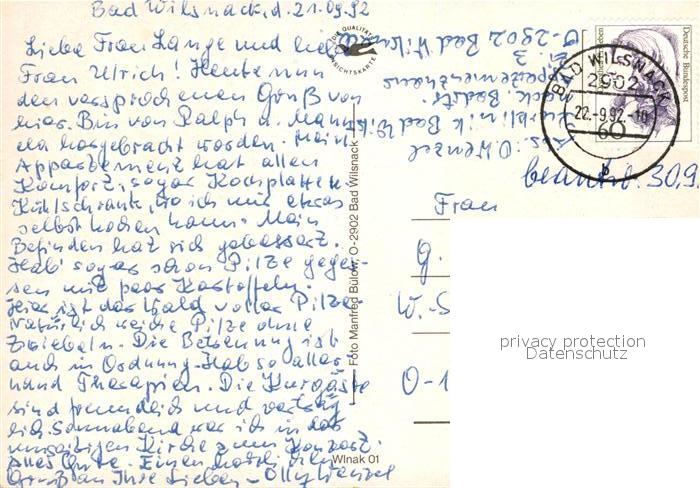 Bad Wilsnack, d. 21.09.92
Liebe Frau Lange und liebe
Frau Ulrich! Heute nun
den versprochenen Gruß von
hier. Bin von Ralph u. Manu
ela hergebracht worden. Mein
Appartement hat allen
Komfort, sogar Kochplatte u.
Kühlschrank, wo ich mir etwas
selbst kochen kann. Mein
Befinden hat sich gebessert.
Hab' sogar schon Pilze geges-
sen mit paar Kartoffeln.
Hier ist der Wald voller Pilze.
Natürlich weiche Pilze ohne
Zwiebeln. Die Betreuung ist
auch in Ordnung. Hab so aller-
hand Therapien. Die Kurgäste
sind freundlich und
Sonnabend war ich in der
Kirche zum Konzert.
Alles Gute. Einen herzlichen
Gruß an Ihre Lieben - Olly Wenzel
Abs.: O. Wenzel
Kurklinik Bad Wils-
nack Badstr.
Appartementhaus
3
O-2902 Bad Wilsnack
QUALITÄT
ANSICHTSKARTE
Foto Manfred Bülow, O-2902 Bad Wilsnack
Wlnak 01
Deutsche Bundespost
BAD WILSNACK
2902
22.-9.92.-10
60
b
beantw. 30.9
Frau
G.
W.-S
O-1
privacy protection
Datenschutz